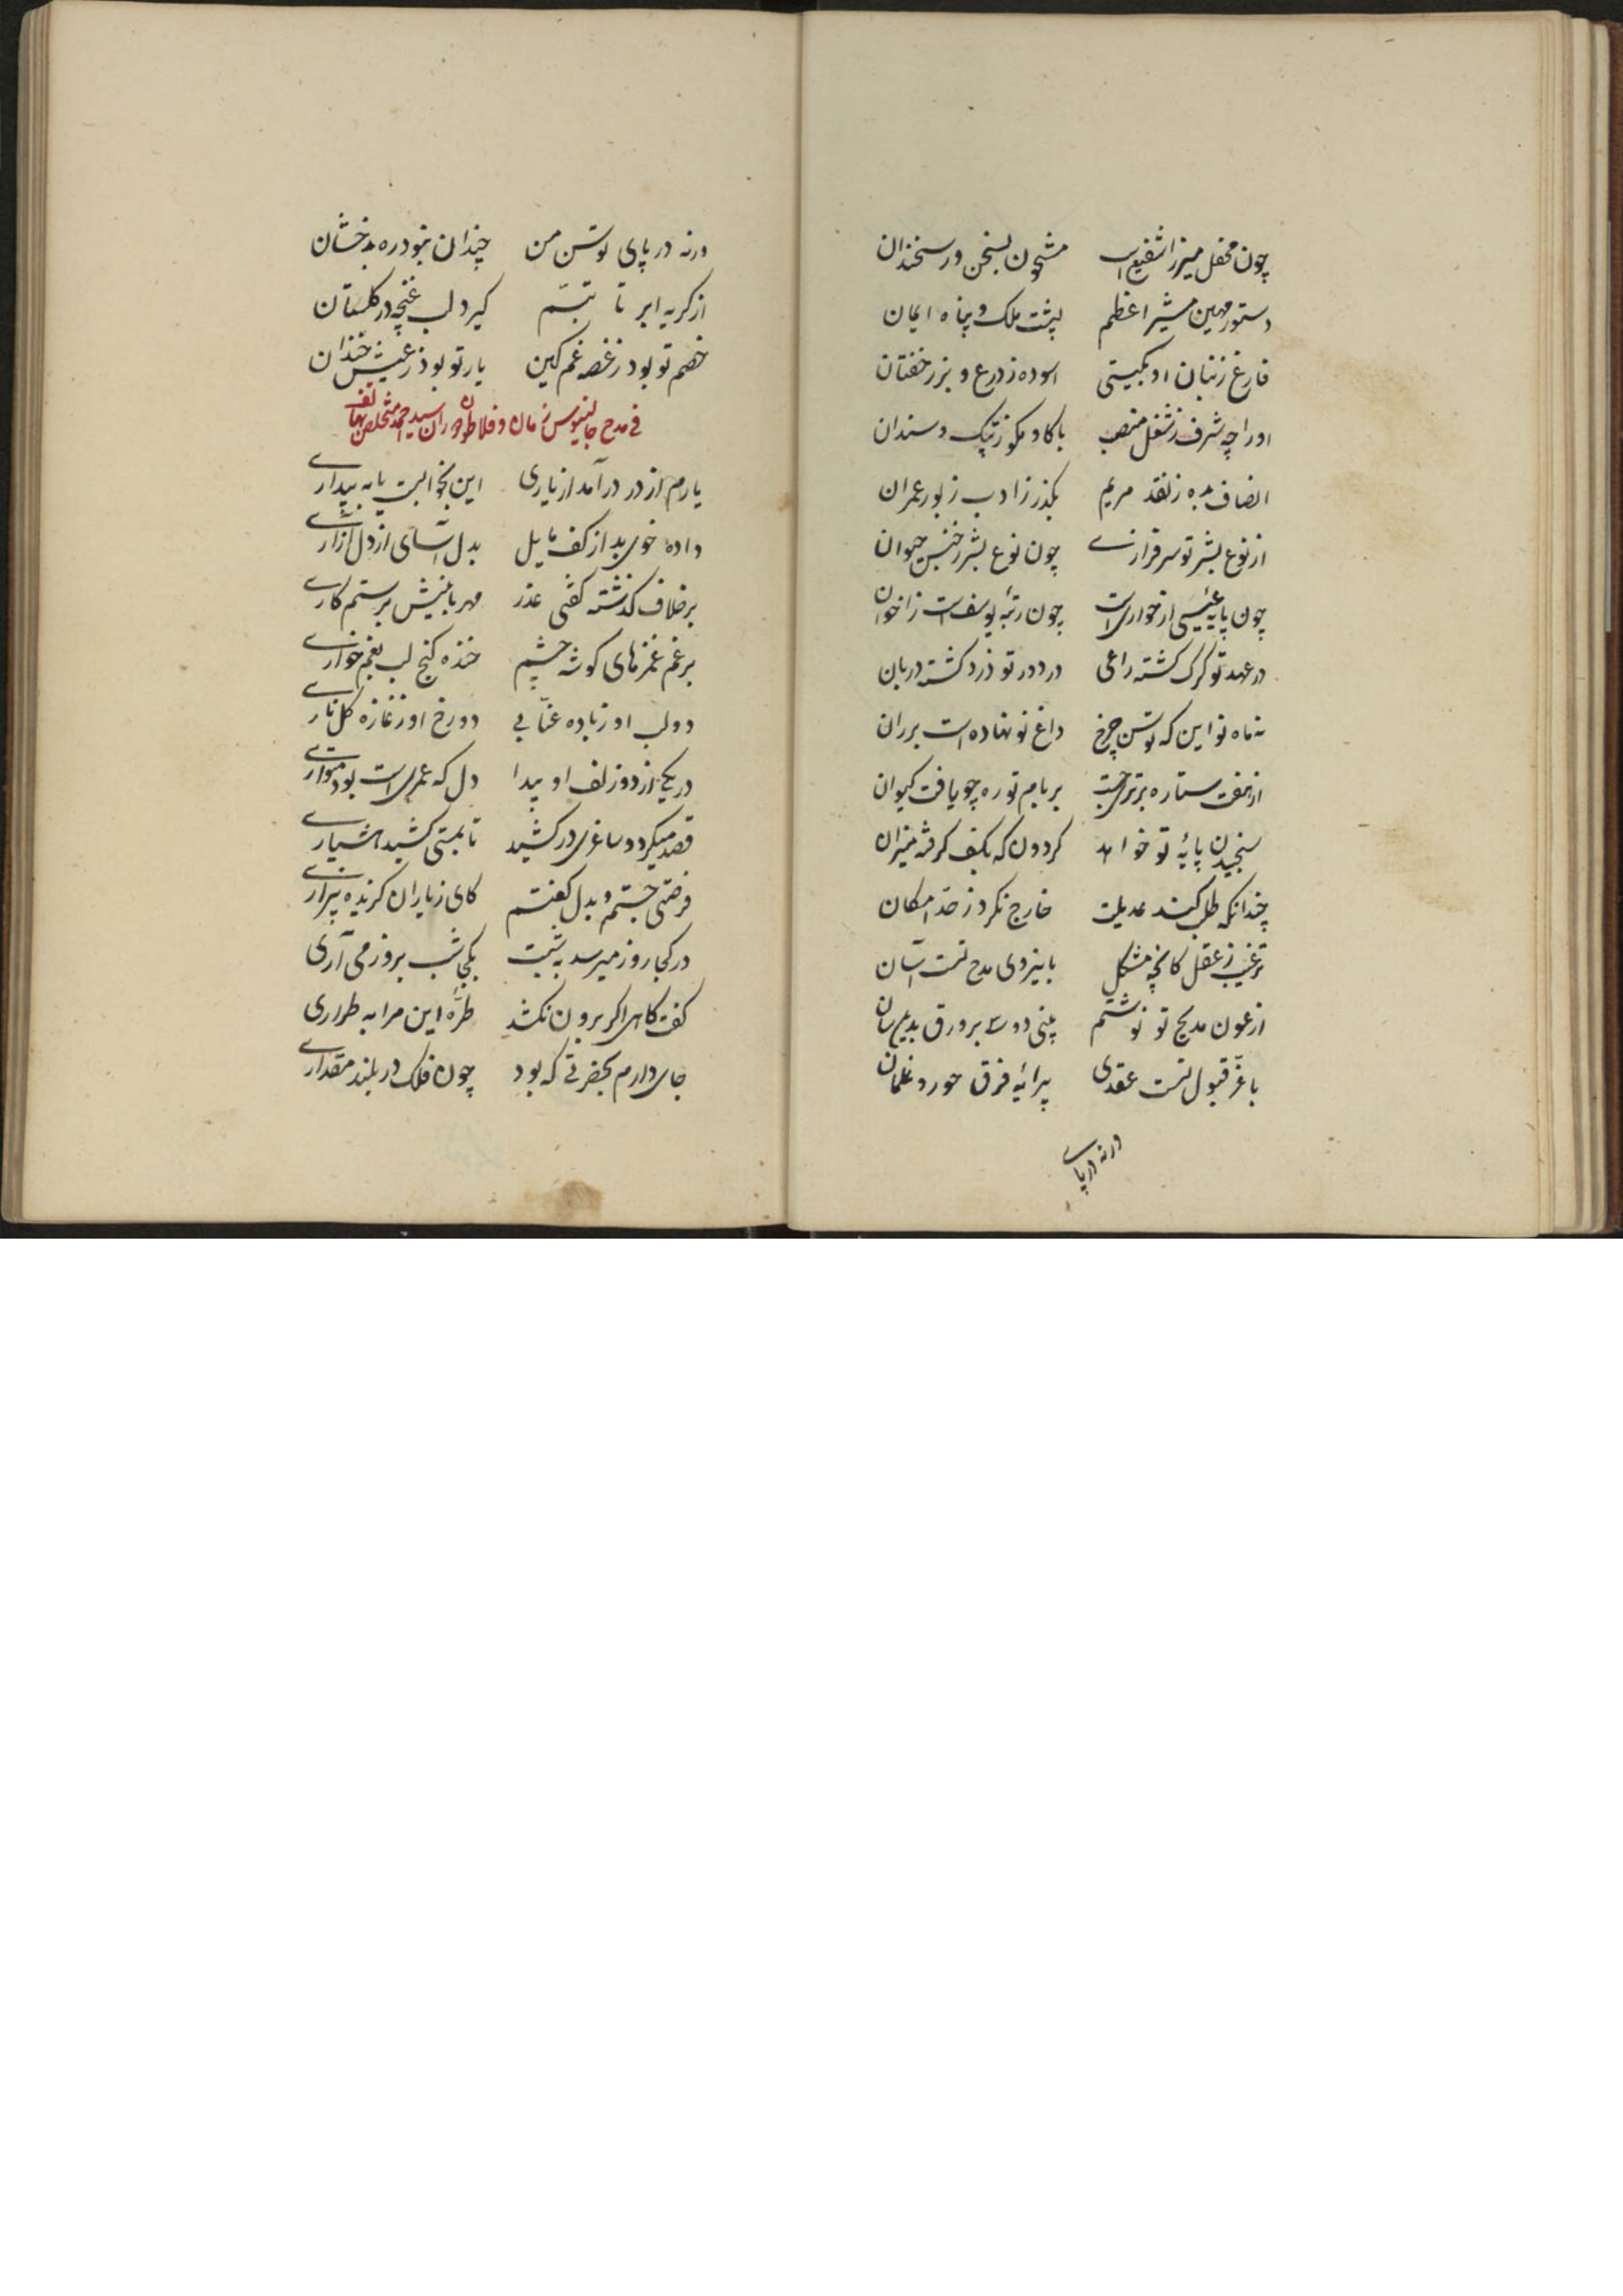 چون محفل میرزا شفیع است مشحون بسخن ور سخندان
دستور مهین مشیر اعظم پشت ملک و پناه ایمان
فارغ زتبان او بکیتی اسوده زدرع و بزر خفتان
او را چه شرف زشغل منصب با کاو مکو زپتک و سندان
انصاف بده زنقد مریم بکذر زادب زپور عمران
از نوع بشر تو سرفرازی چون نوع بشر زجنس حیوان
چون پایه عیسی از حواریت چون رتبه یوسفت زاخوان
در عهد تو کرک کشته راعی در دور تو دزد کشته دربان
نه ماه نو این که توسن چرخ داغ تو نهاده است بر ران
از هفت ستاره برتری جست بر بام تو ره چو یافت کیوان
سنجیدن پایه تو خواهد کردون که بکف کرفته میزان
چندانکه طلب کنند عدیلت خارج نکرد زحد امکان
ترغیب زعقل کانچه مشکل با نیروی مدح تست آسان
از عون مدیح تو نوشتم بیتی دو سه بر ورق بدینسان
با عز قبول تست عقدی پیرایه فرق حور و غلمان
ورنه در پای
ورنه در پای توسن من چندان نبود ره بدخشان
از کریه ابر تا تبسّم کیرد لب غنچه در کلستان
خصم تو بود زغصه غم کین یار تو بود زعیش خندان
فی مدح جالینوس زمان و فلاطون دوران سید احمد متخلص بهاتف
یارم از در درآمد از یاری این بخوابست یا به بیداری
داده خوی بد از کف مایل بدل آسای از دل آزاری
برخلاف کذشته کفتی عذر مهربانیش بر ستم کاری
برغم غمزهای کوشه چشم خنده کنج لب بغم خواری
دو لب او زباده عنّابی دو رخ او زغازه کل ناری
در یکی از دو زلف او پیدا دل که عمری است بود متواری
قصد میکرد و ساغری در کشید تا بمستی کشید هشیاری
فرصتی جستم و بدل کفتم کای زیاران کزیده بیزاری
در کجا روز میرسد به شبت بکجا شب بروز می آری
کفت کاهی اکر برون نکشد طرّه این مرا به طراری
جای دارم بحضرتی که بود چون فلک در بلند مقداری